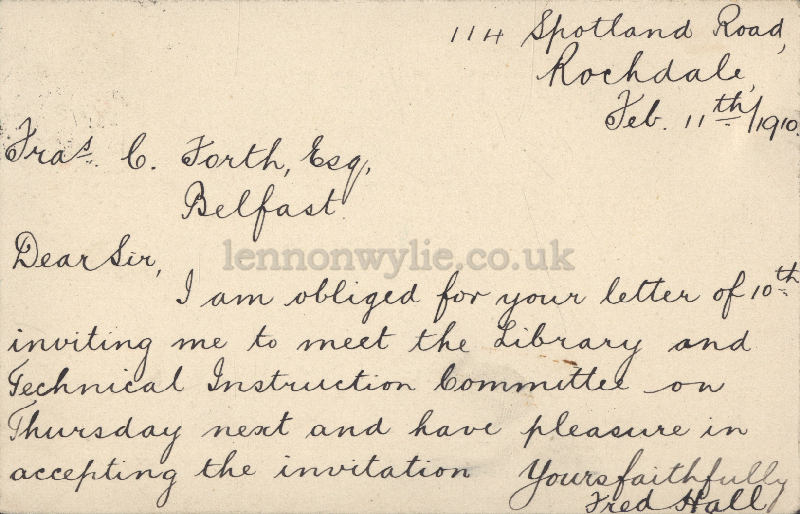 114 Spotland Road,
Rochdale,
Feb. 11th/1910.
Fras. C. Forth, Esq,
Belfast.
Dear Sir,
lennonwylie.co.uk
I am obliged for your letter of 10th
inviting me to meet the Library and
Technical Instruction Committee on
Thursday next and have pleasure in
accepting the invitation Yours faithfully
Fred Hall